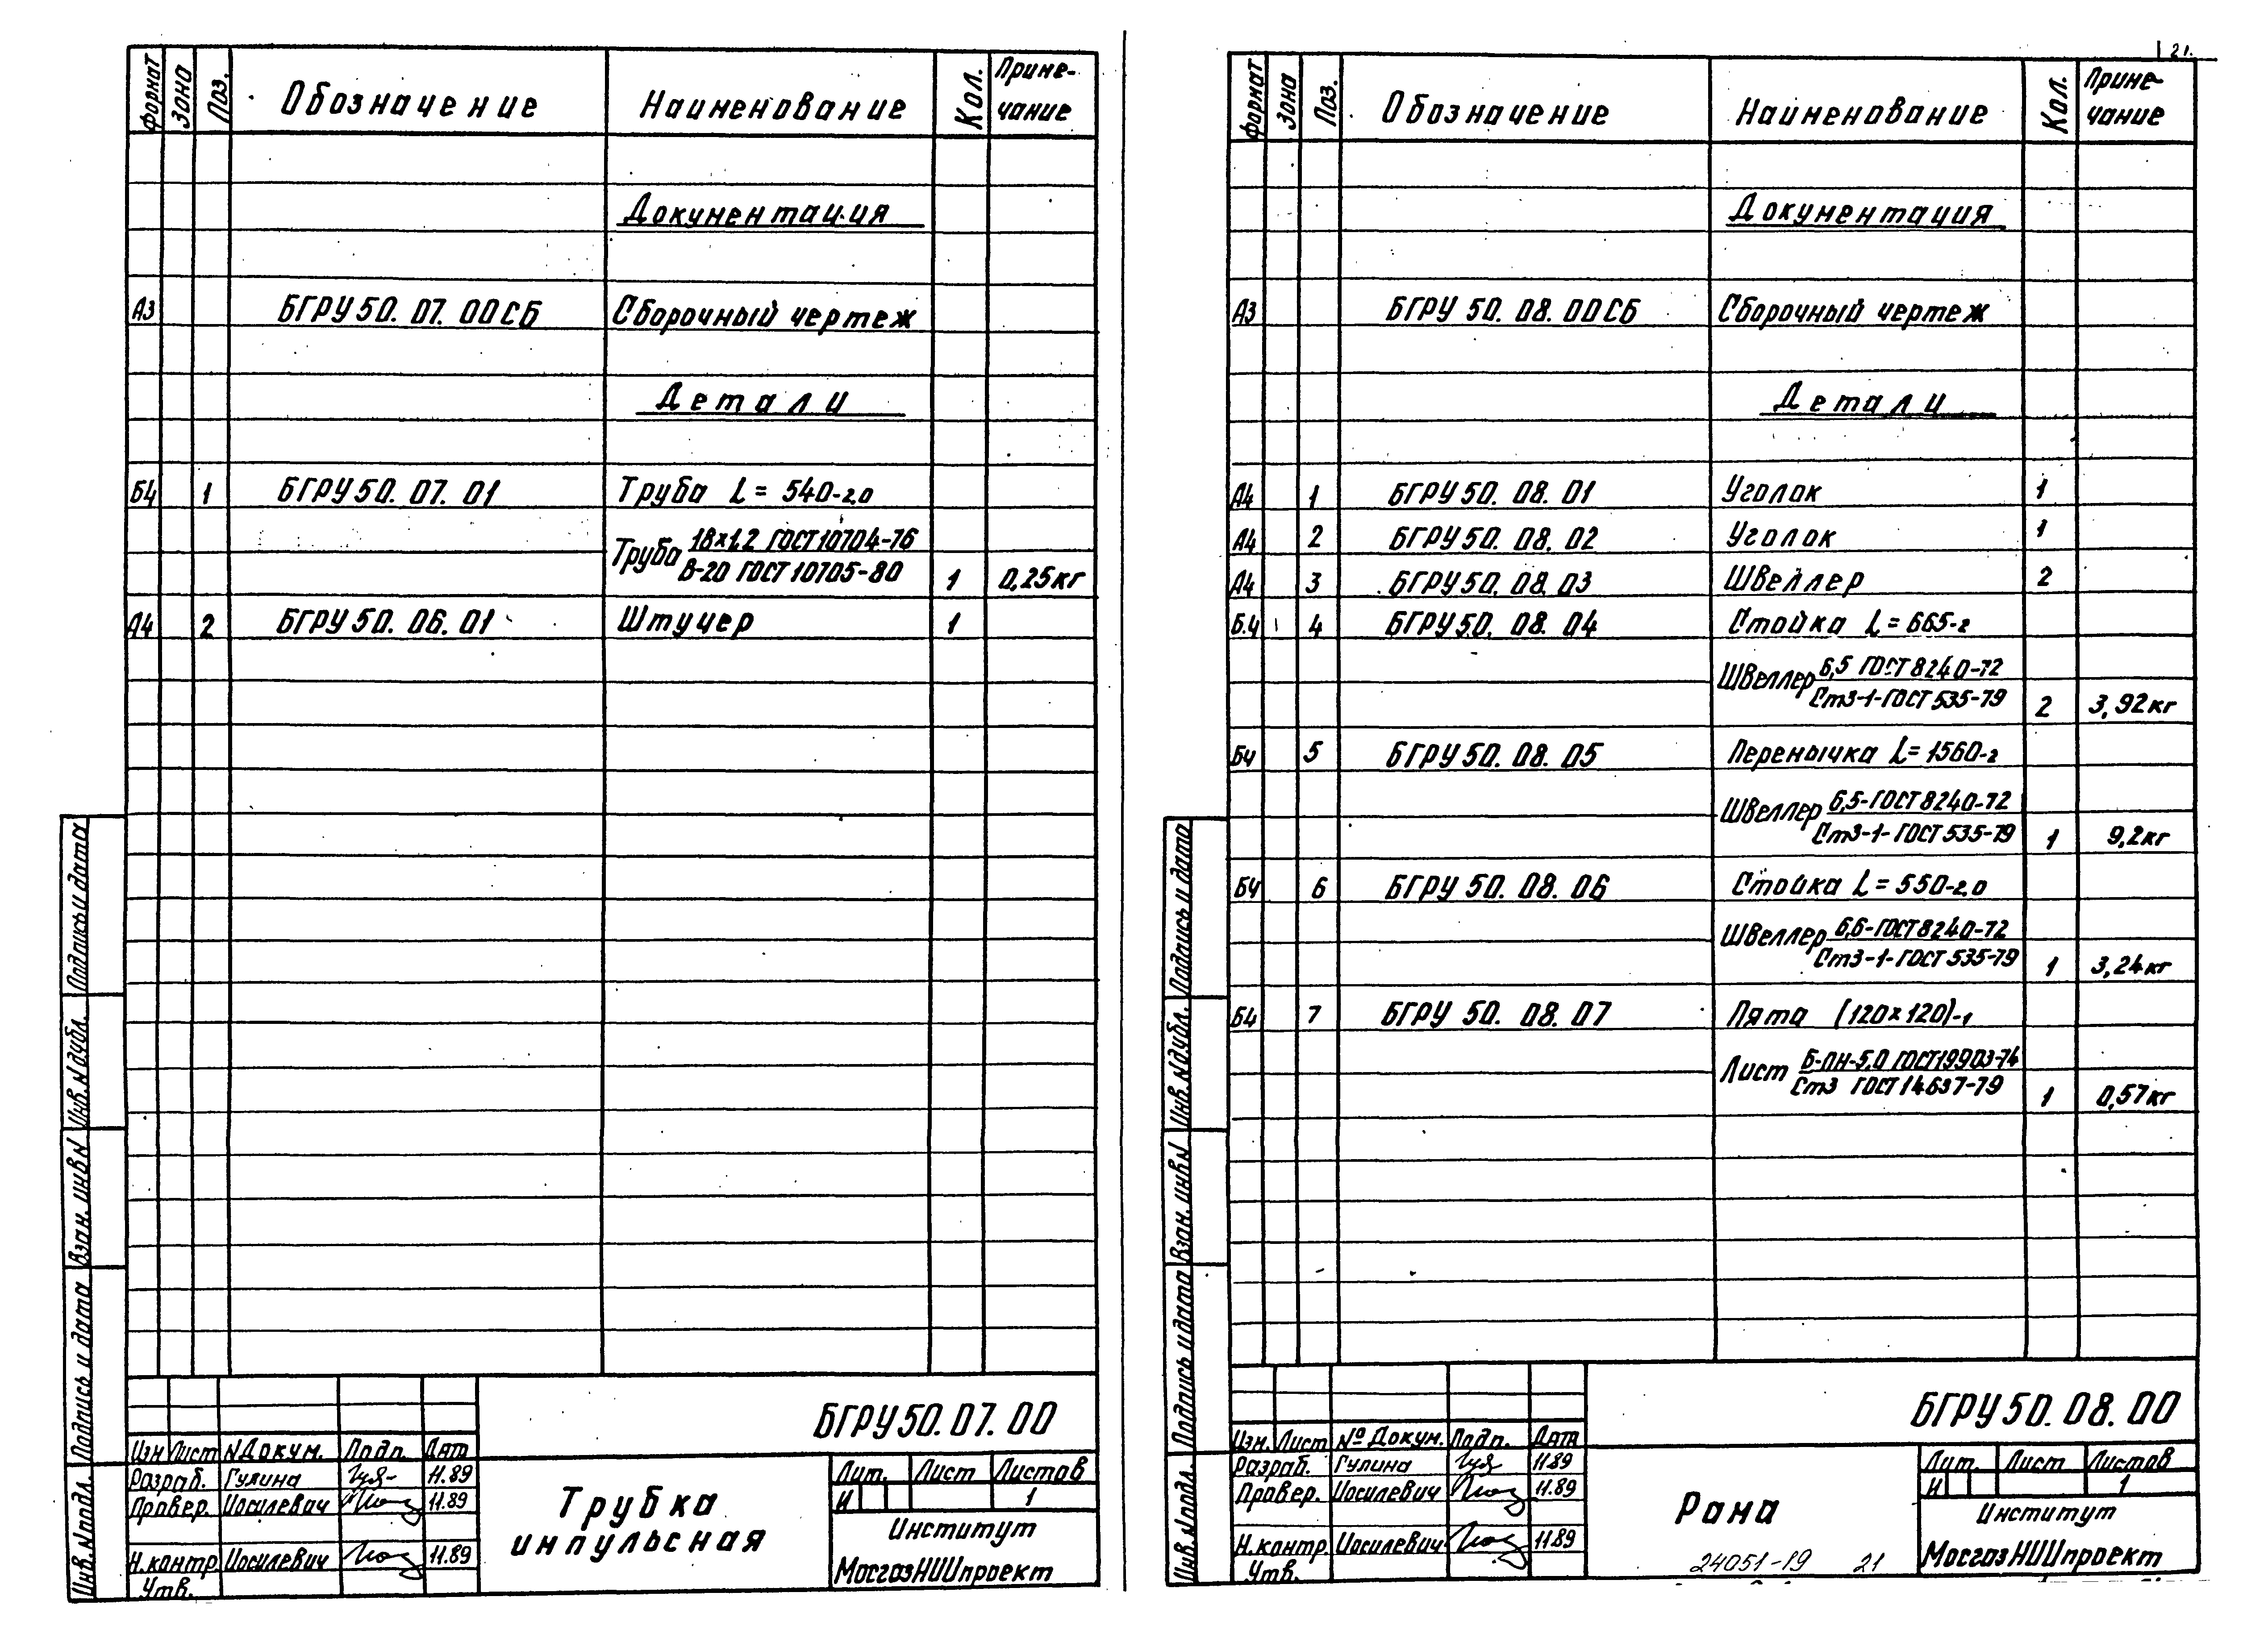 Формат Зона Поз. Обозначение Наименование Кол. Приме-
чание
Документация
А3 БГРУ50.07.00СБ Сборочный чертеж
Детали
Б4 1 БГРУ50.07.01 Труба L = 540-2,0
Труба 18×1,2 ГОСТ 10704-76
В-20 ГОСТ 10705-80 1 0,25кг
А4 2 БГРУ50.06.01 Штуцер 1
Подпись и дата
Инв.N дубл.
Взам. инв N
Подпись и дата
Инв.N подл.
БГРУ50.07.00
Изм Лист N Докум. Подп. Дат
Разраб. Гулина 11.89
Провер. Иосилевич 11.89
Н.контр Иосилевич 11.89
Утв.
Трубка
импульсная
Лит. Лист Листов
И 1
Институт
МосгазНИИпроект
21.
Формат Зона Поз. Обозначение Наименование Кол. Приме-
чание
Документация
А3 БГРУ 50.08.00СБ Сборочный чертеж
Детали
А4 1 БГРУ 50.08.01 Уголок 1
А4 2 БГРУ 50.08.02 Уголок 1
А4 3 БГРУ 50.08.03 Швеллер 2
Б.4 4 БГРУ 50.08.04 Стойка L = 665-2
Швеллер 6,5 ГОСТ 8240-72
Ст3-1-ГОСТ 535-79 2 3,92кг
Б4 5 БГРУ 50.08.05 Перемычка L = 1560-2
Швеллер 6,5-ГОСТ 8240-72
Ст3-1-ГОСТ 535-79 1 9,2кг
Б4 6 БГРУ 50.08.06 Стойка L = 550-2,0
Швеллер 6,6-ГОСТ 8240-72
Ст3-1-ГОСТ 535-79 1 3,24кг
Б4 7 БГРУ 50.08.07 Пята (120×120)-1
Лист Б-ПН-5,0 ГОСТ 19903-74
Ст3 ГОСТ 14637-79 1 0,57кг
Подпись и дата
Инв.N дубл.
Взам. инв N
Подпись и дата
Инв.N подл.
БГРУ50.08.00
Изм. Лист № Докум. Подп. Дат
Разраб. Гулина 11.89
Провер. Иосилевич 11.89
Н.контр. Иосилевич 11.89
Утв.
Рама
Лит. Лист Листов
И 1
Институт
МосгазНИИпроект
24051-19 21